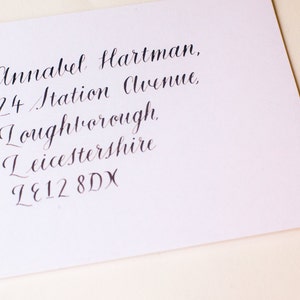 Annabel Hartman,
24 Station Avenue,
Loughborough,
Leicestershire
LE12 8DX